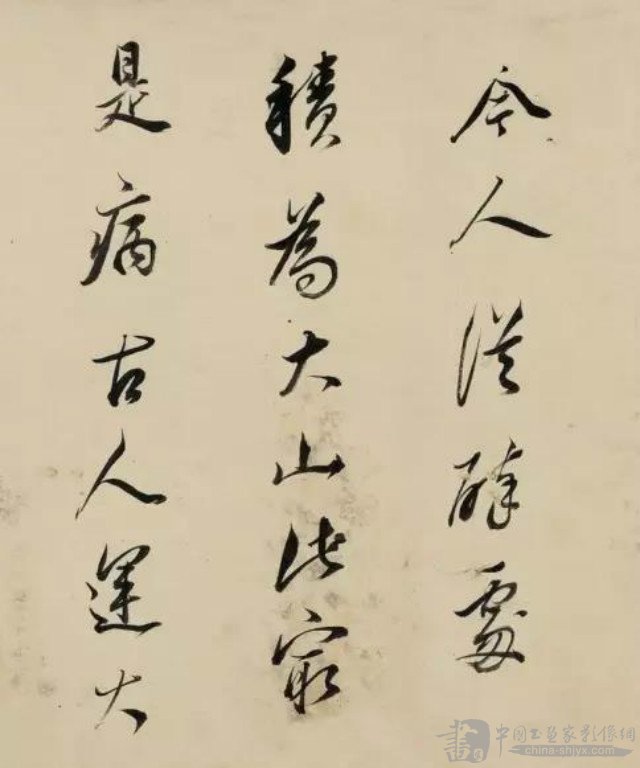 今人從碎處
積為大山此最
是病古人運大
中國书画家影像網
www.china-shjyx.com